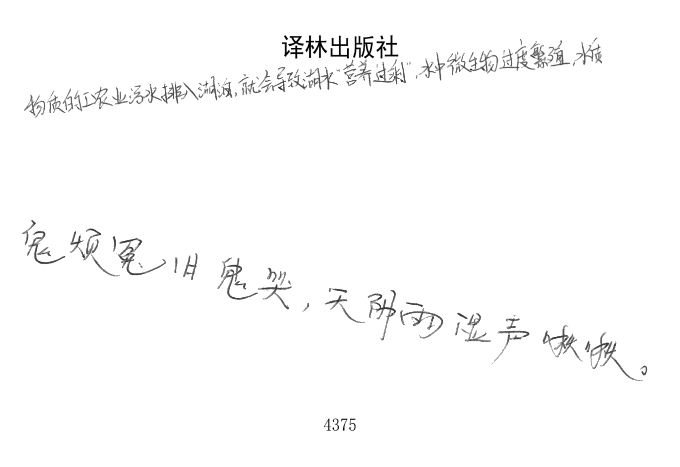 译林出版社
物质的工农业污水排入湖泊,就会导致湖水“营养过剩”,水中微生物过度繁殖,水质
鬼烦冤旧鬼哭,天阴雨湿声啾啾。
4375